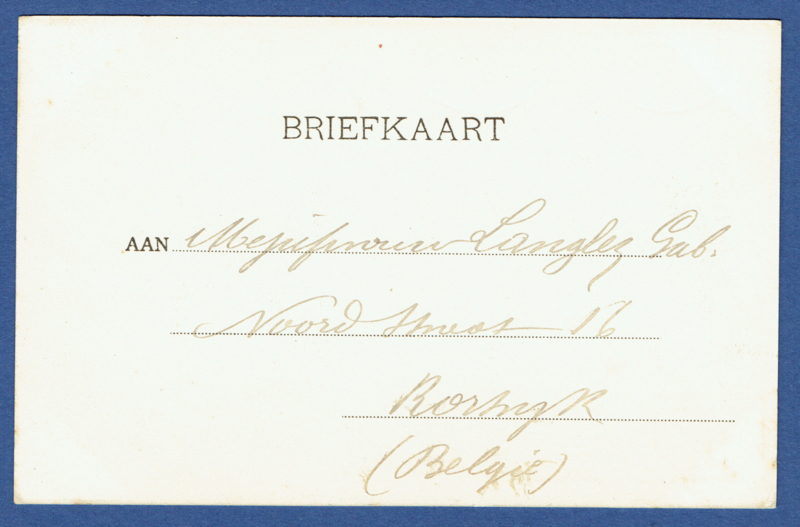 BRIEFKAART
AAN Mejufvrouw Langlez Gab.
Noord Straat 16
Kortryk
(Belgie)